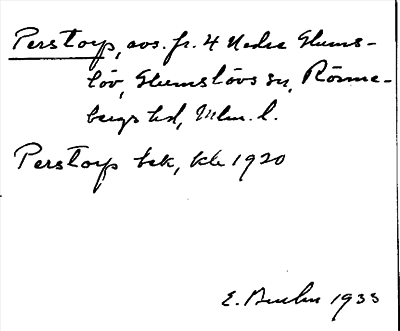 Perstorp, avs. fr. 4 Nedre Glums-
löv, Glumslövs sn, Rönne-
bergs hd, Mlm. l.
Perstorp bek, kk 1920
E. 1933